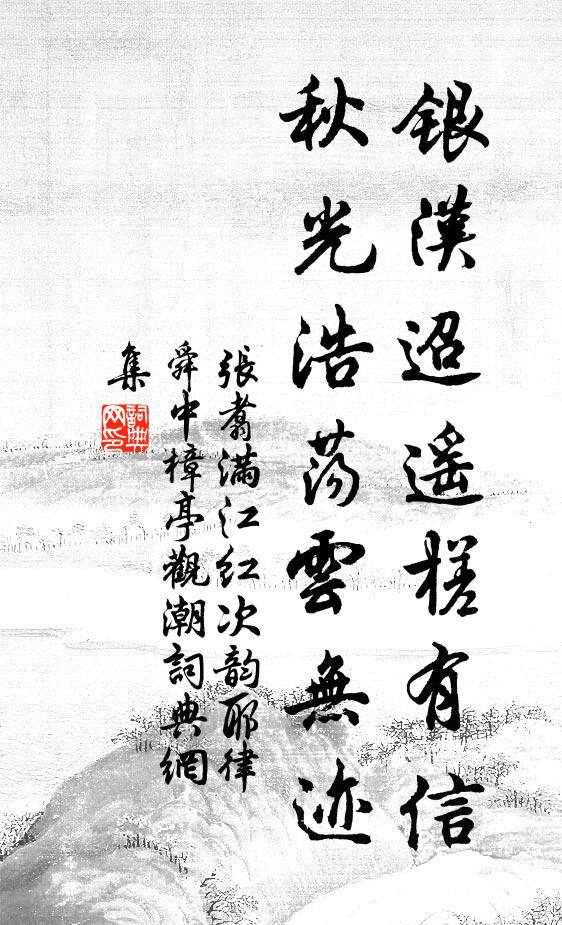 銀漢迢遥槎有信
秋光浩荡雲無迹
張翥满江红次韵耶律
舜中樟亭觀潮詞典網
集
詞典网印